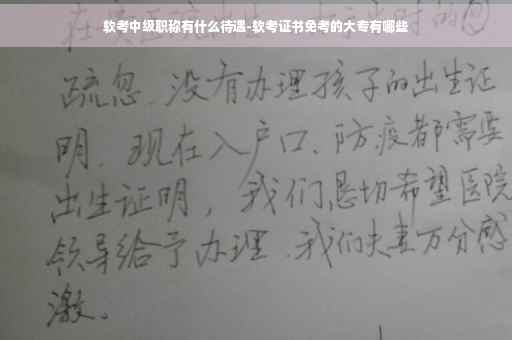 软考中级职称有什么待遇-软考证书免考的大专有哪些
疏忽、没有办理孩子的出生证
明、现在入户口、防疫都需要
出生证明，我们恳切希望医院
领导给予办理、我们夫妻万分感
激。